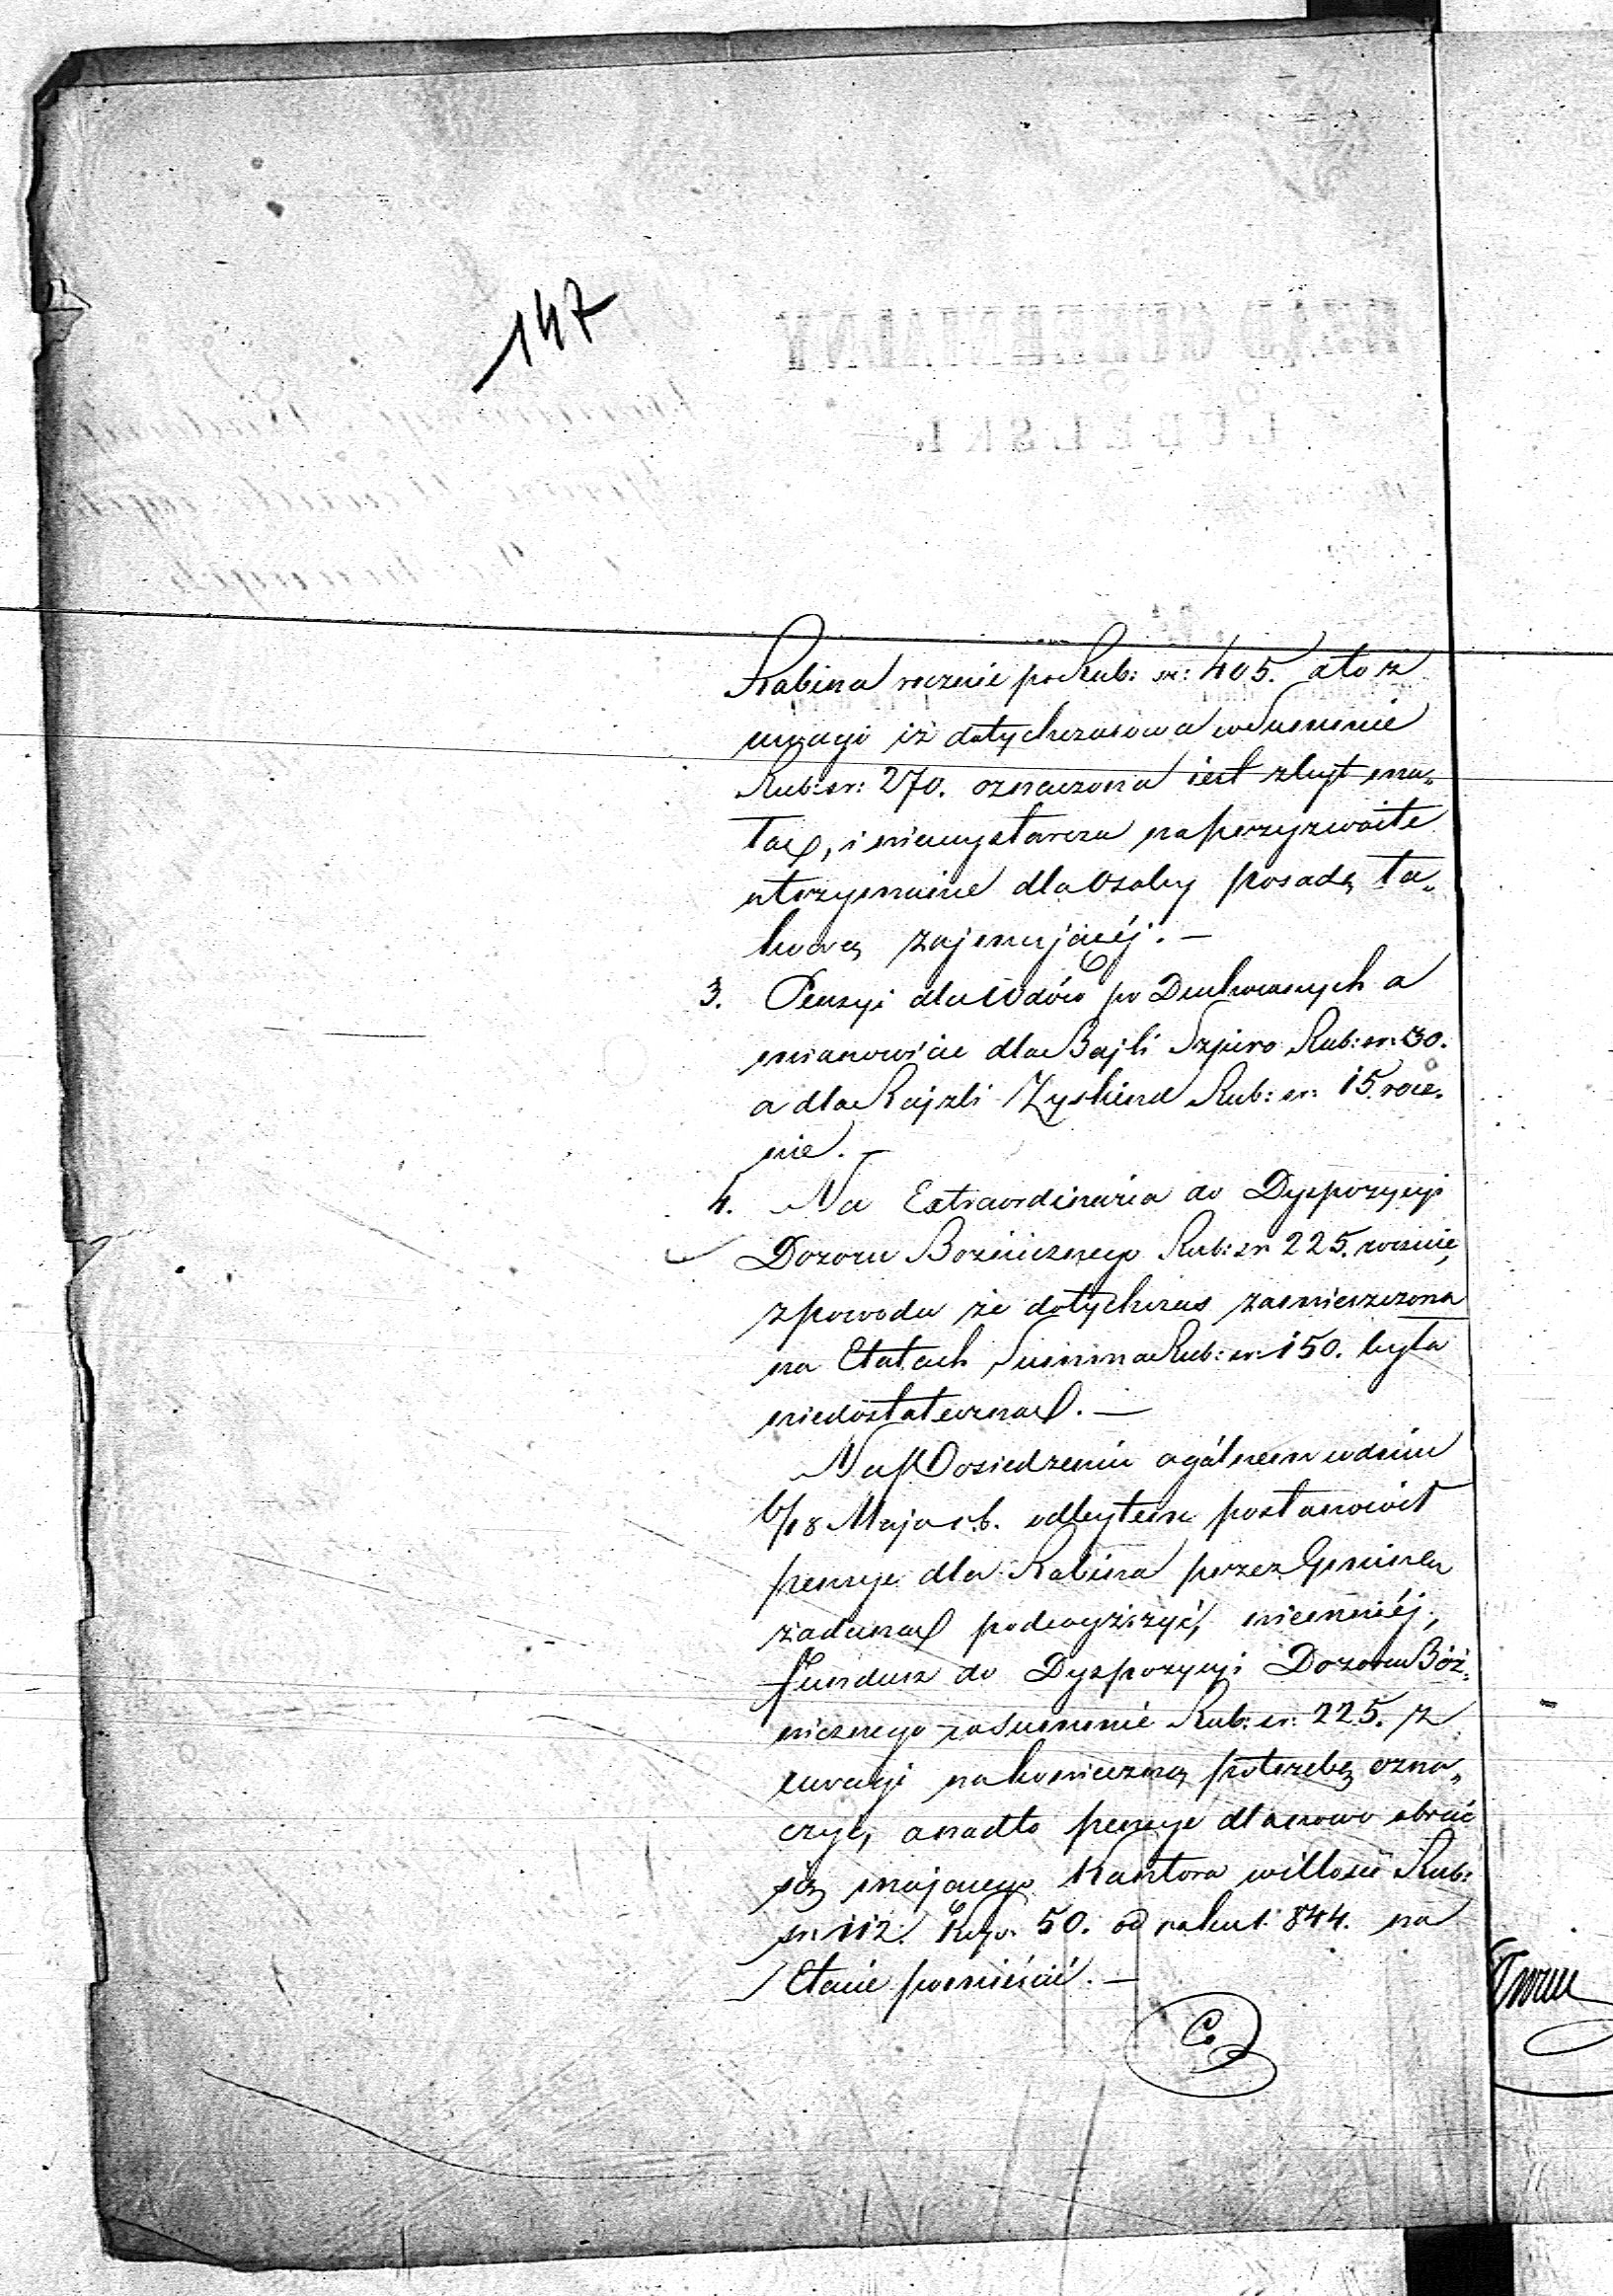 147
Rabina rocznie po Rub: sr: 405. a to z
uwagi iż dotychczasowa w Summie
Rub: sr: 270. oznaczona iest zbyt ma„
łą, i niewystarcza na przyzwoite
utrzymanie dla Osoby posadę ta„
kową zajmującéj. —
3. Pensyi dla Wdów po Duchownych a
mianowicie dla Bajli Szpiro Rub: sr: 30.
a dla Rajzli Zyskind Rub: sr: 15. rocz„
nie. —
4. Na Extraordinaria do Dyspozycyi
Dozoru Bożnicznego Rub: sr 225. rocznie,
z powodu że dotychczas zamieszczona
na Etatach Summa Rub: sr: 150. była
niedostateczną. —
Na Posiedzeniu ogólnem w dniu
6/18 Maja r. b. odbytem postanowił
pensye dla Rabina przez Gminę
żądaną podwyższyć, niemniéj,
fundusz do Dyspozycyi Dozoru Bóż„
nicznego w Summie Rub: sr: 225. z
uwagi na konieczną potrzebę ozna„
czyć, a nadto pensye dla nowo obrać
się mającego Kantora w illości Rub:
sr: 112. Kop. 50. od roku 1844. na
Etacie pomieścić. —